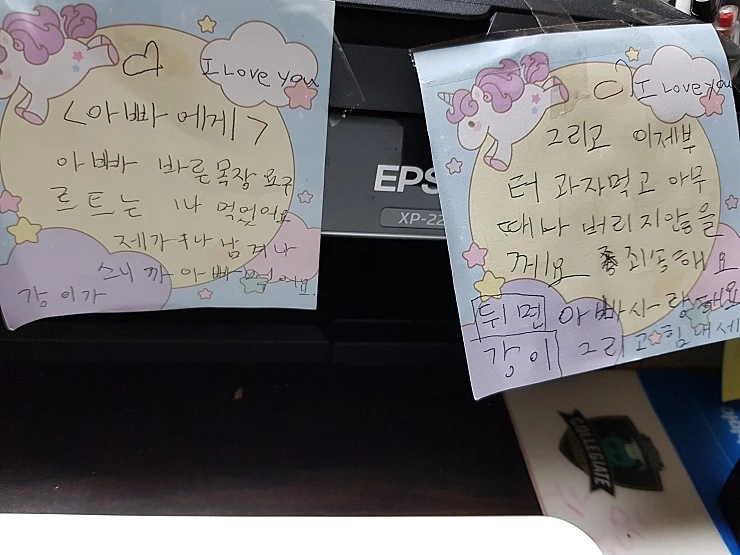 I Love you
<아빠에게>
아빠 바른목장 요구
르트는 1나 먹었어요
제가 하나 남겨나
스니까 아빠
강이가
I Love you
그리고 이제부
터 과자먹고 아무
때나 버리지않을
께요 죄송해요
뒤면 아빠사랑해요
강이 그리고 힘내세
EPS
XP-22
COLLEGIATE